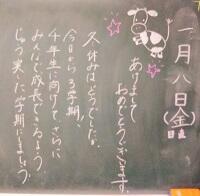 一月八日(金)
日直
あけまして
おめでとうございます。
冬休みはどうでしたか。
今日から3学期。
4年生に向けて、さらに
みんなで成長できるよう、
じゅう実した学期にしましょう。